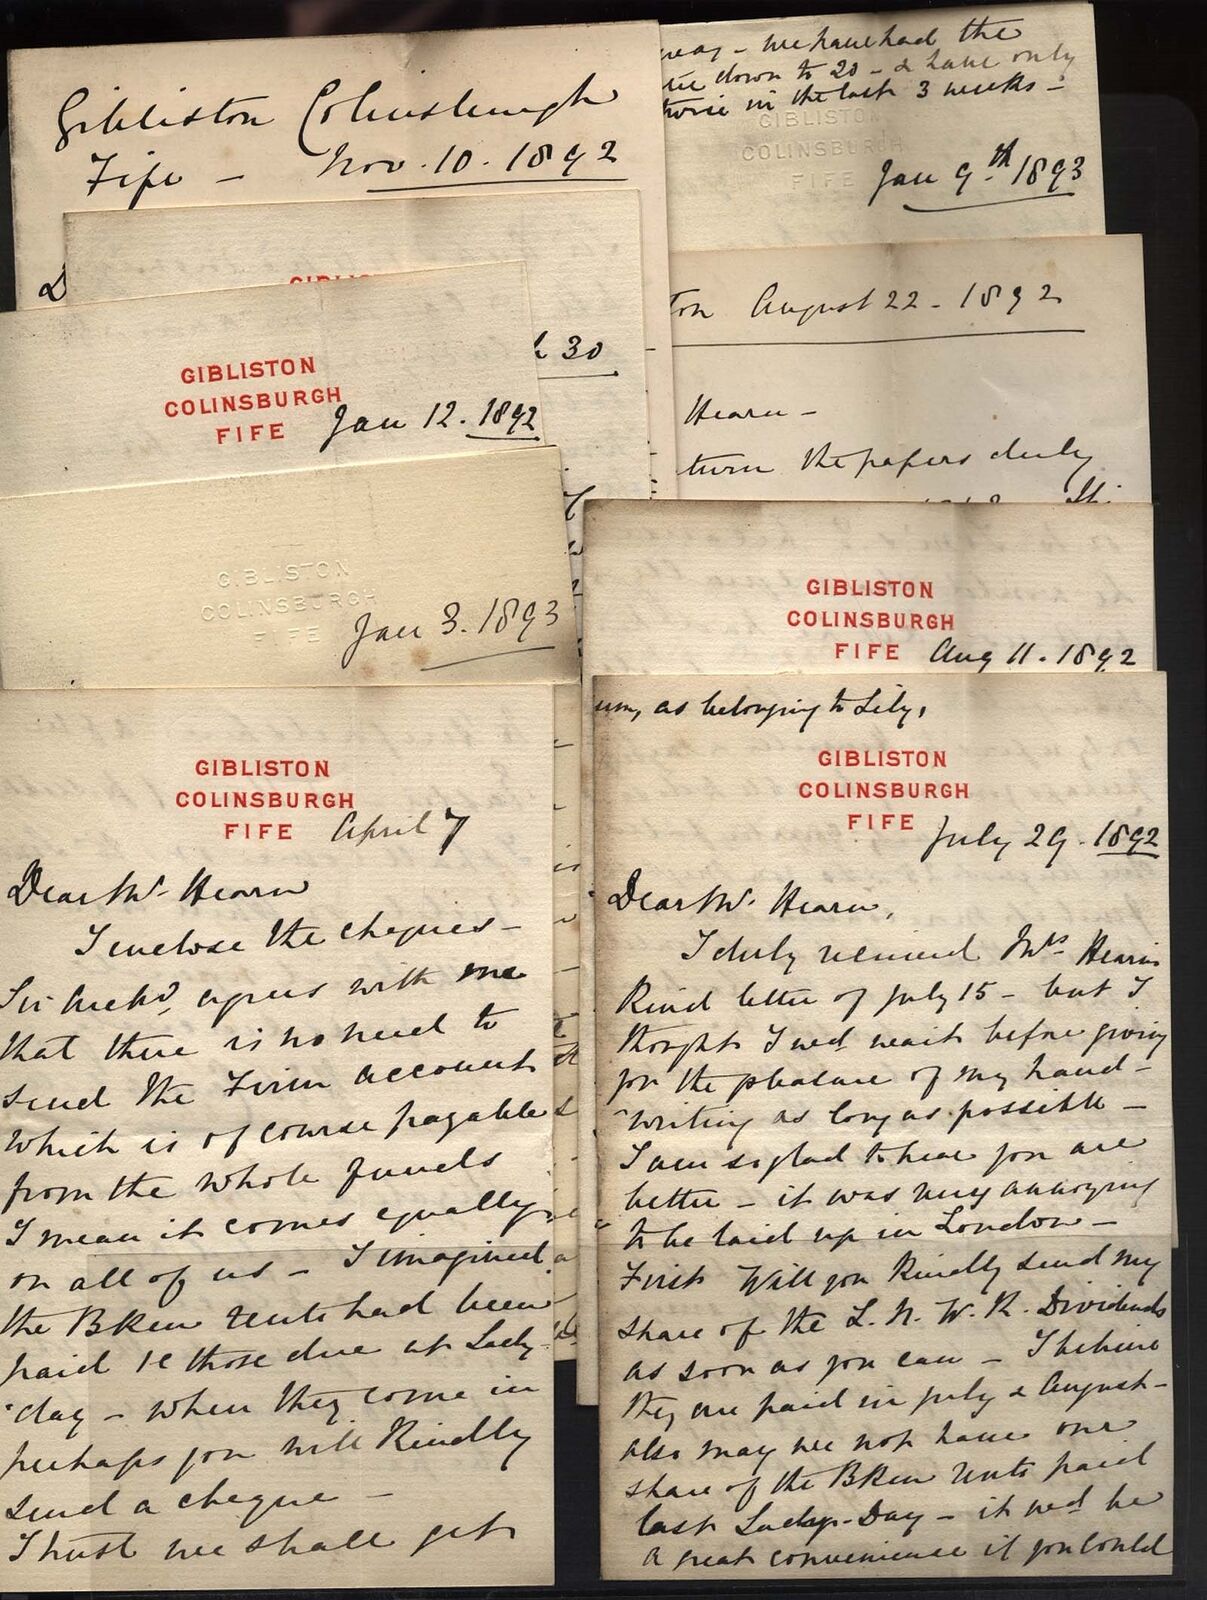 Gibliston Colinsburgh
Fife - Nov. 10. 1892
D
GIBLISTON
COLINSBURGH
FIFE
Jan 12. 1892
30
GIBLISTON
COLINSBURGH
FIFE
Jan 3. 1893
way - we have had the
down to 20 - & have only
twice in the last 3 weeks -
GIBLISTON
COLINSBURGH
FIFE
Jan 9th 1893
ton August 22 - 1892
Hearn -
turn the papers duly
GIBLISTON
COLINSBURGH
FIFE
Aug 11. 1892
GIBLISTON
COLINSBURGH
FIFE
April 7
Dear Mr. Hearn
I enclose the cheques -
Sir Archd. agrees with me
that there is no need to
send the Firm account
which is of course payable
from the whole funds
I mean it comes equally
on all of us - I imagined
the BKen rents had been
paid ie those due at Lady-
day - when they come in
perhaps you will Kindly
send a cheque -
I trust we shall get
um, as belonging to Lily,
GIBLISTON
COLINSBURGH
FIFE
July 29. 1892
Dear Mr. Hearn,
I duly received Mrs Hearn's
Kind letter of July 15 - but I
thought I wed wait before giving
for the pleasure of my hand-
writing as long as possible -
I am so glad to hear you are
better - it was very annoying
to be laid up in London -
First Will you Kindly send my
share of the L. N. W. R. Dividends
as soon as you can - I believe
they are paid in July & August -
also may we not have our
share of the BKen rents paid
last Lady-Day - it wed be
a great convenience if you could